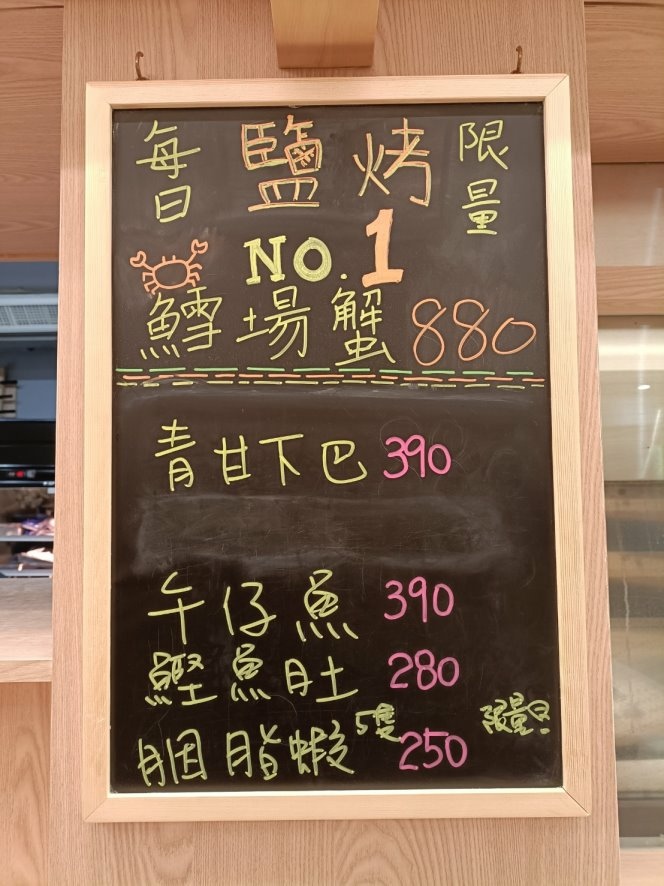 每日 鹽烤 限量
NO.1
鱈場蟹 880
青甘下巴 390
午仔魚 390
鰹魚肚 280
胭脂蝦 5隻 250 限量